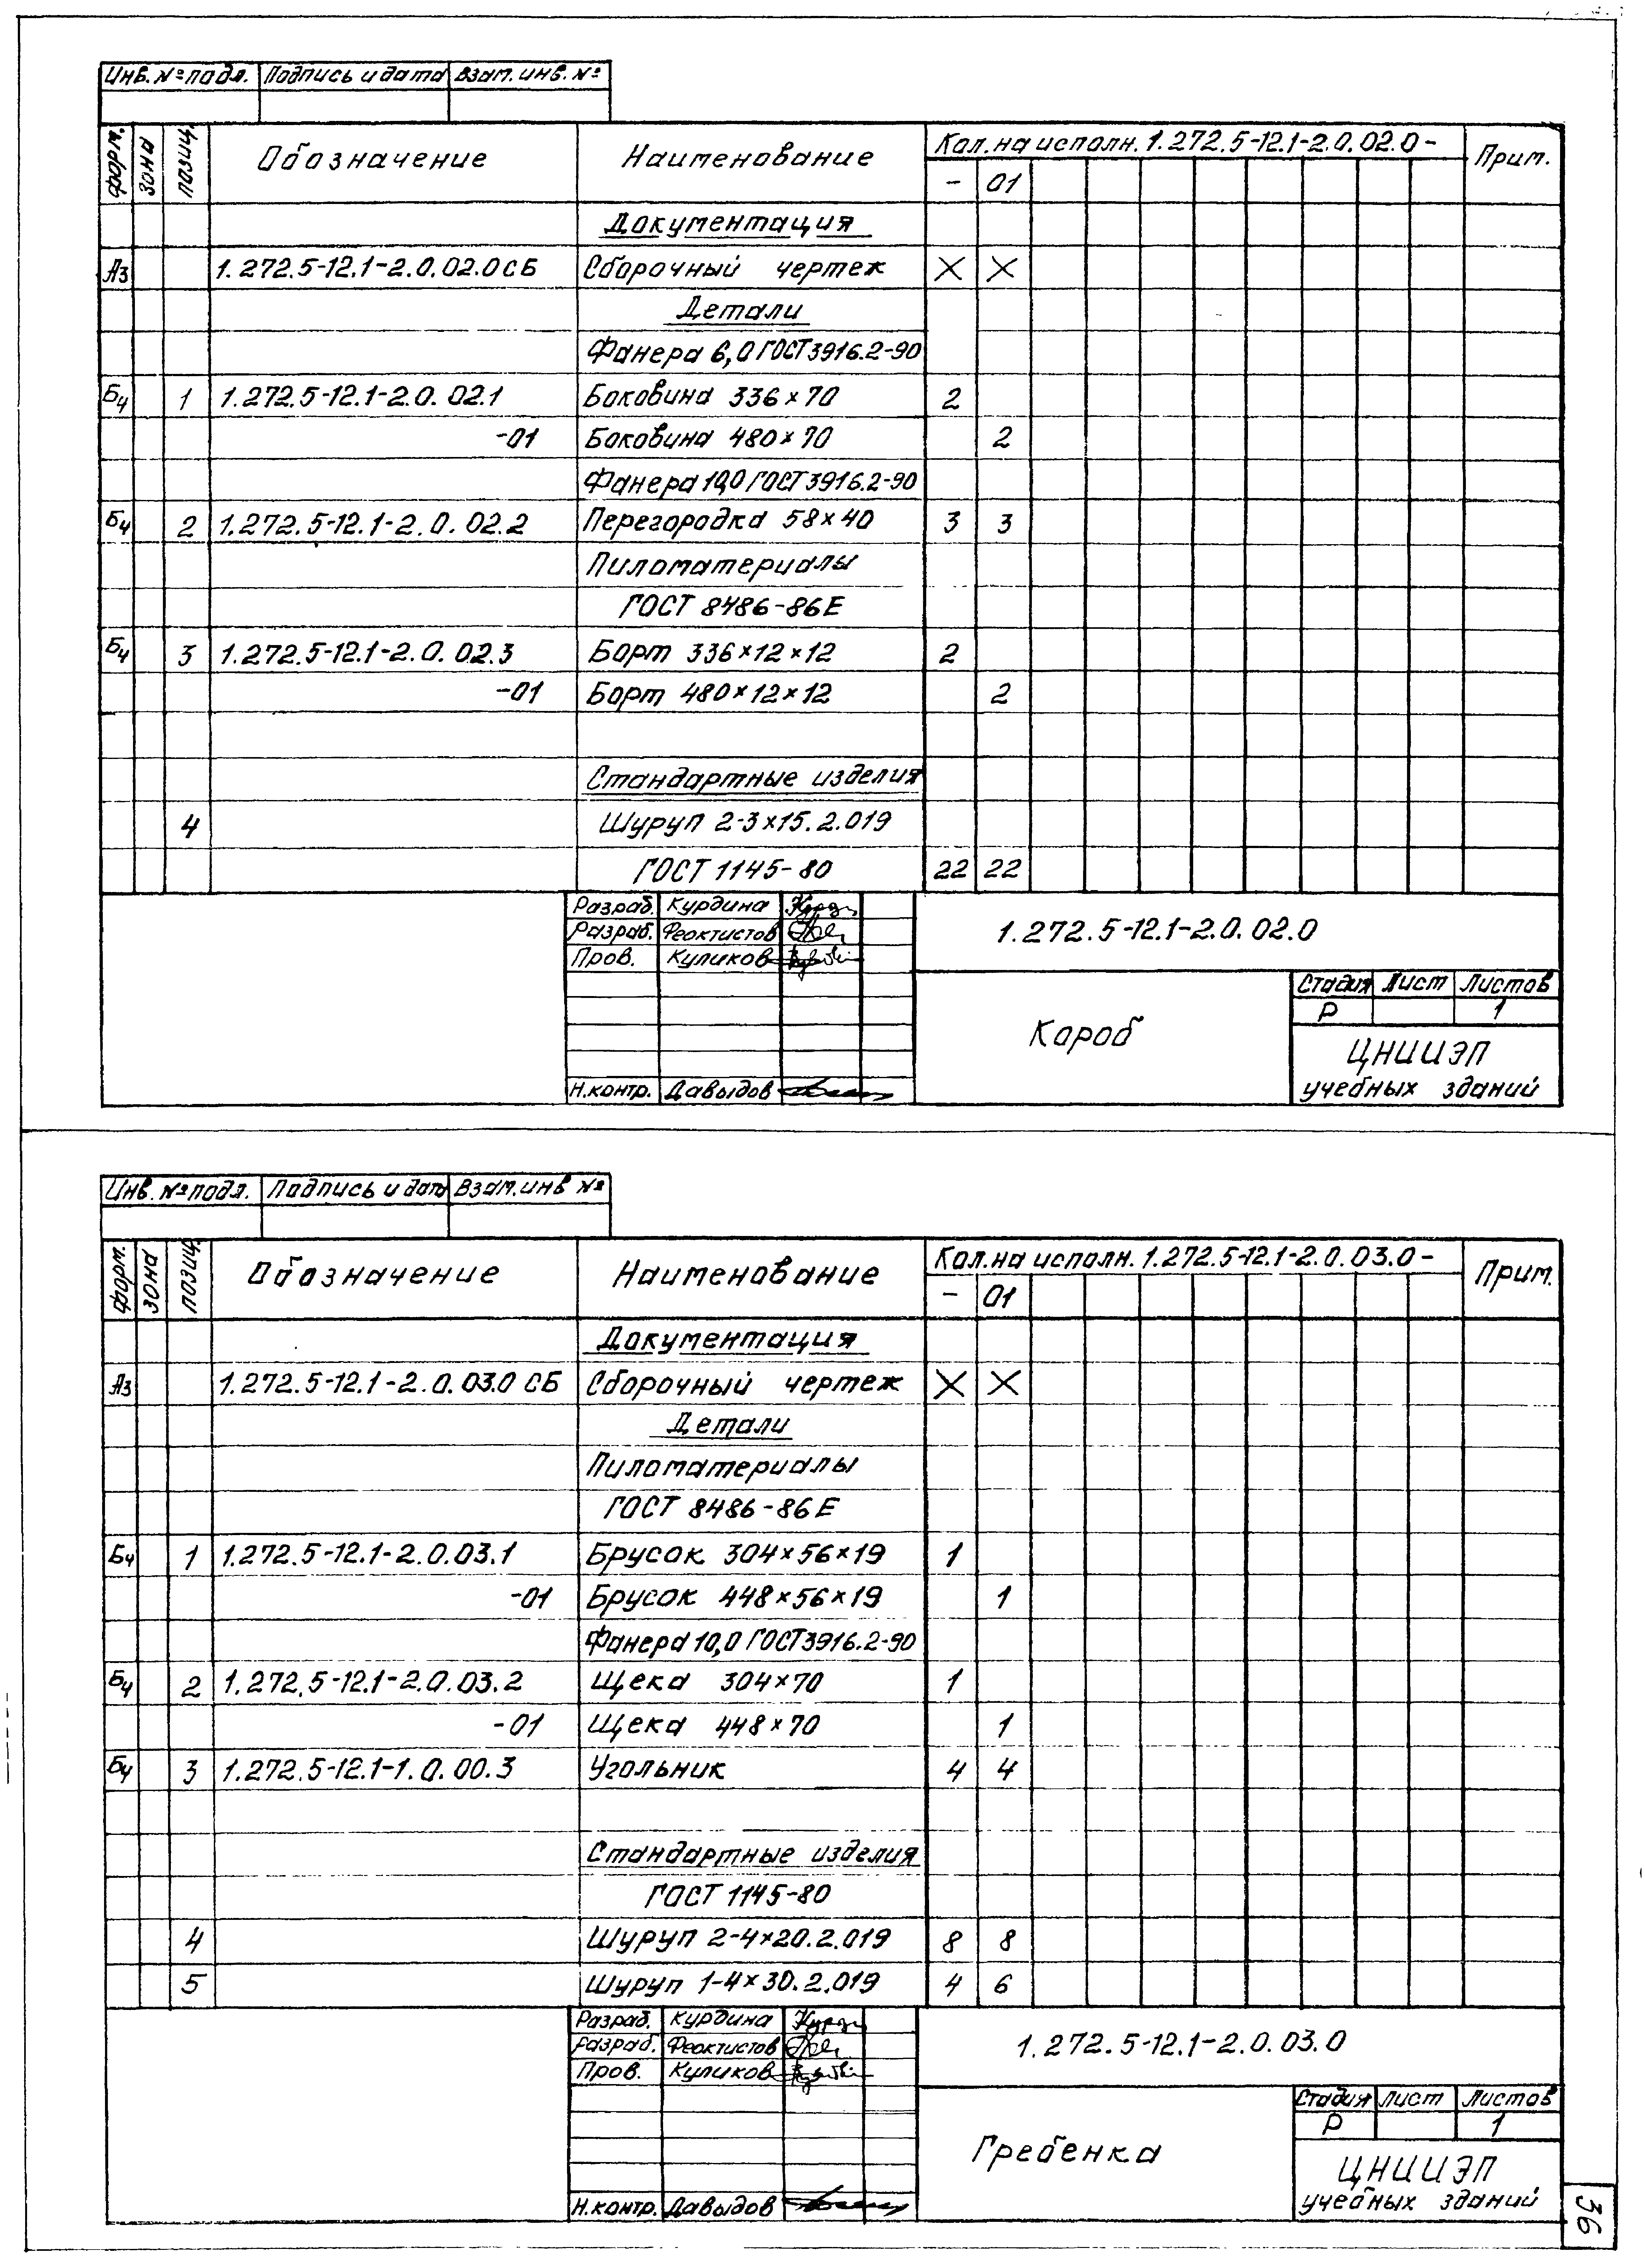 Инв. № подл. Подпись и дата Взам. инв. №
форм. зона позиц. Обозначение Наименование Кол. на исполн. 1.272.5-12.1-2.0.02.0 - Прим.
- 01
Документация
А3 1.272.5-12.1-2.0.02.0 СБ Сборочный чертеж X X
Детали
Фанера 6,0 ГОСТ 3916.2-90
Б4 1 1.272.5-12.1-2.0.02.1 Боковина 336×70 2
-01 Боковина 480×70 2
Фанера 10,0 ГОСТ 3916.2-90
Б4 2 1.272.5-12.1-2.0.02.2 Перегородка 58×40 3 3
Пиломатериалы
ГОСТ 8486-86Е
Б4 3 1.272.5-12.1-2.0.02.3 Борт 336×12×12 2
-01 Борт 480×12×12 2
Стандартные изделия
4 Шуруп 2-3×15.2.019
ГОСТ 1145-80 22 22
Разраб. Курдина
Разраб. Феоктистов
Пров. Куликов
1.272.5-12.1-2.0.02.0
Короб
Стадия Лист Листов
Р 1
ЦНИИЭП
учебных зданий
Н.контр. Давыдов
Инв. № подл. Подпись и дата Взам. инв №
форм. зона позиц. Обозначение Наименование Кол. на исполн. 1.272.5-12.1-2.0.03.0 - Прим.
- 01
Документация
А3 1.272.5-12.1-2.0.03.0 СБ Сборочный чертеж X X
Детали
Пиломатериалы
ГОСТ 8486-86Е
Б4 1 1.272.5-12.1-2.0.03.1 Брусок 304×56×19 1
-01 Брусок 448×56×19 1
Фанера 10,0 ГОСТ 3916.2-90
Б4 2 1.272.5-12.1-2.0.03.2 Щека 304×70 1
-01 Щека 448×70 1
Б4 3 1.272.5-12.1-1.0.00.3 Угольник 4 4
Стандартные изделия
ГОСТ 1145-80
4 Шуруп 2-4×20.2.019 8 8
5 Шуруп 1-4×30.2.019 4 6
Разраб. Курдина
Разраб. Феоктистов
Пров. Куликов
1.272.5-12.1-2.0.03.0
Гребенка
Стадия Лист Листов
Р 1
ЦНИИЭП
учебных зданий
Н.контр. Давыдов
36